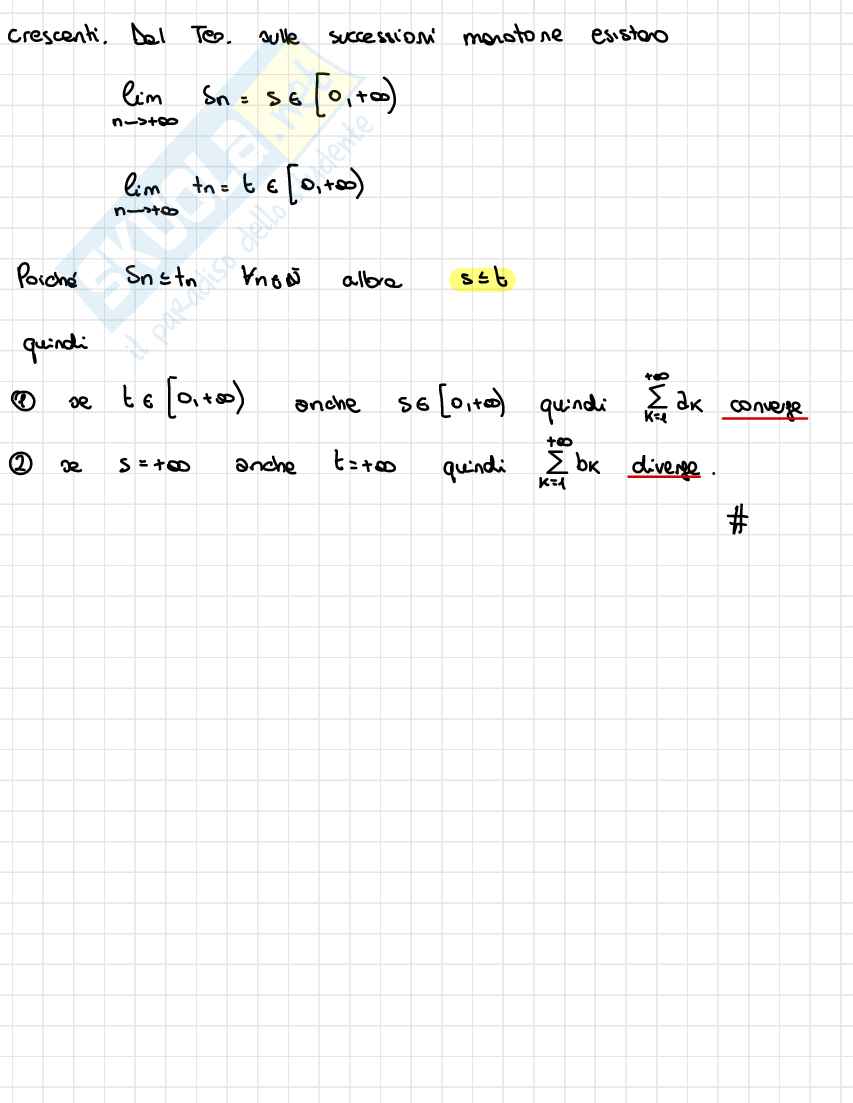 crescenti. Dal Teo. sulle successioni monotone esistono
lim n→+∞ Sn = s ∈ [0,+∞)
lim n→+∞ tn = t ∈ [0,+∞)
Poiché Sn ≤ tn ∀n∈N allora s ≤ t
quindi
① se t ∈ [0,+∞) anche s ∈ [0,+∞) quindi +∞ Σ K=1 aK converge
② se s = +∞ anche t = +∞ quindi +∞ Σ K=1 bK diverge.
#
SKUOLA.net
il paradiso dello studente